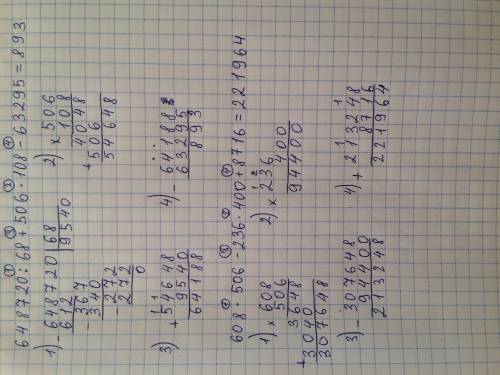 ① ③ ② ④
648720:68+506·108-63295=893
1) -648720|68
612 |9540
-367
340
-272
272
0
2) ×506
108
4048
+506
54648
3) +54648
9540
64188
4) -64188
63295
893
① ③ ② ④
608·506-236·400+8716=221964
1) ×608
506
3648
+3040
307648
2) ×236
400
94400
3) -307648
94400
213248
4) +213248
8716
221964